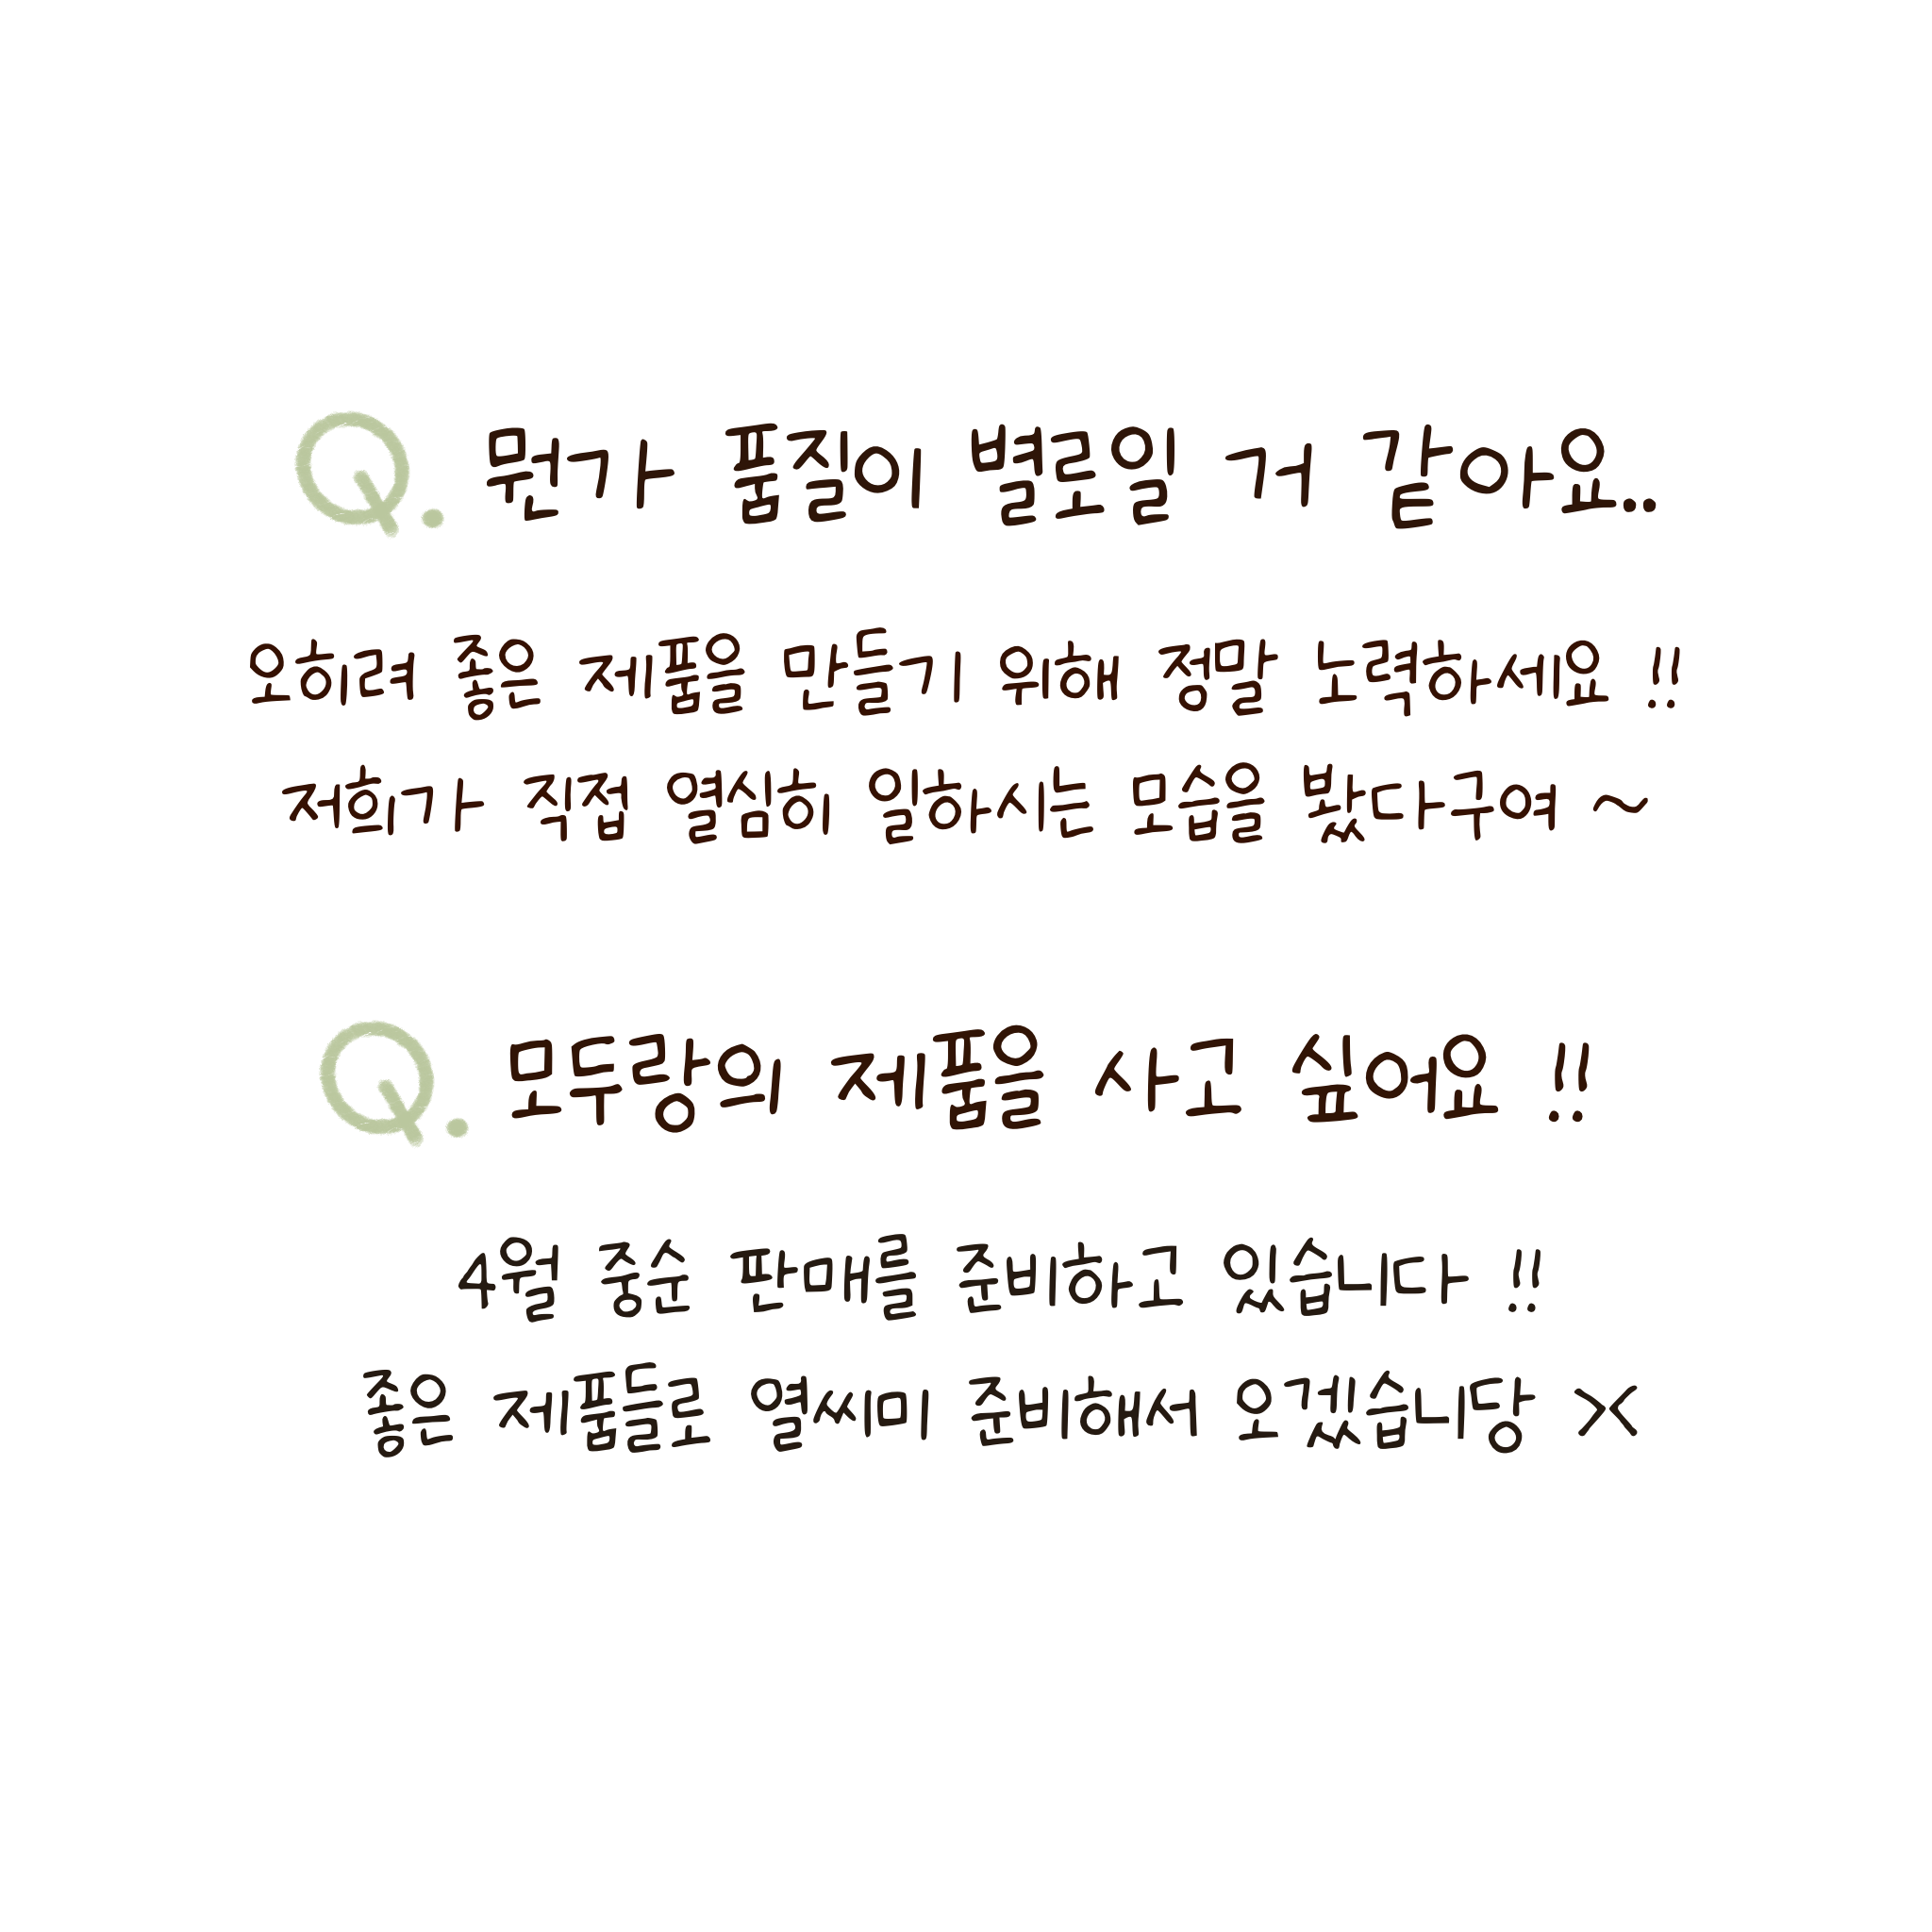 Q. 뭔가 품질이 별로일 거 같아요..
오히려 좋은 제품을 만들기 위해 정말 노력하세요 !!
저희가 직접 열심히 일하시는 모습을 봤다구여 ~
Q. 모두랑의 제품을 사고 싶어요 !!
4월 중순 판매를 준비하고 있습니다 !!
좋은 제품들로 열씨미 준비해서 오겠습니당 ><